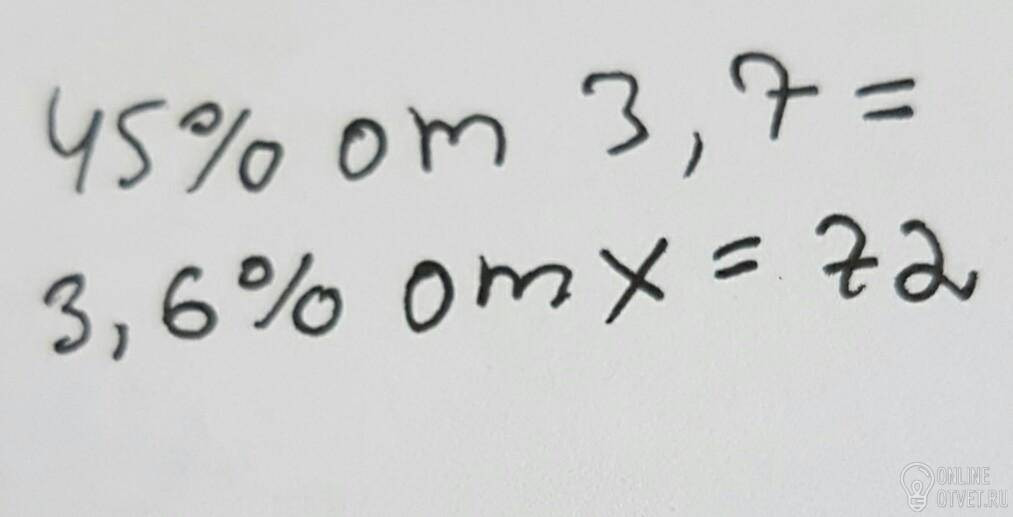 45% от 3,7 =
3,6% от x = 72
ONLINE
OTVET.RU